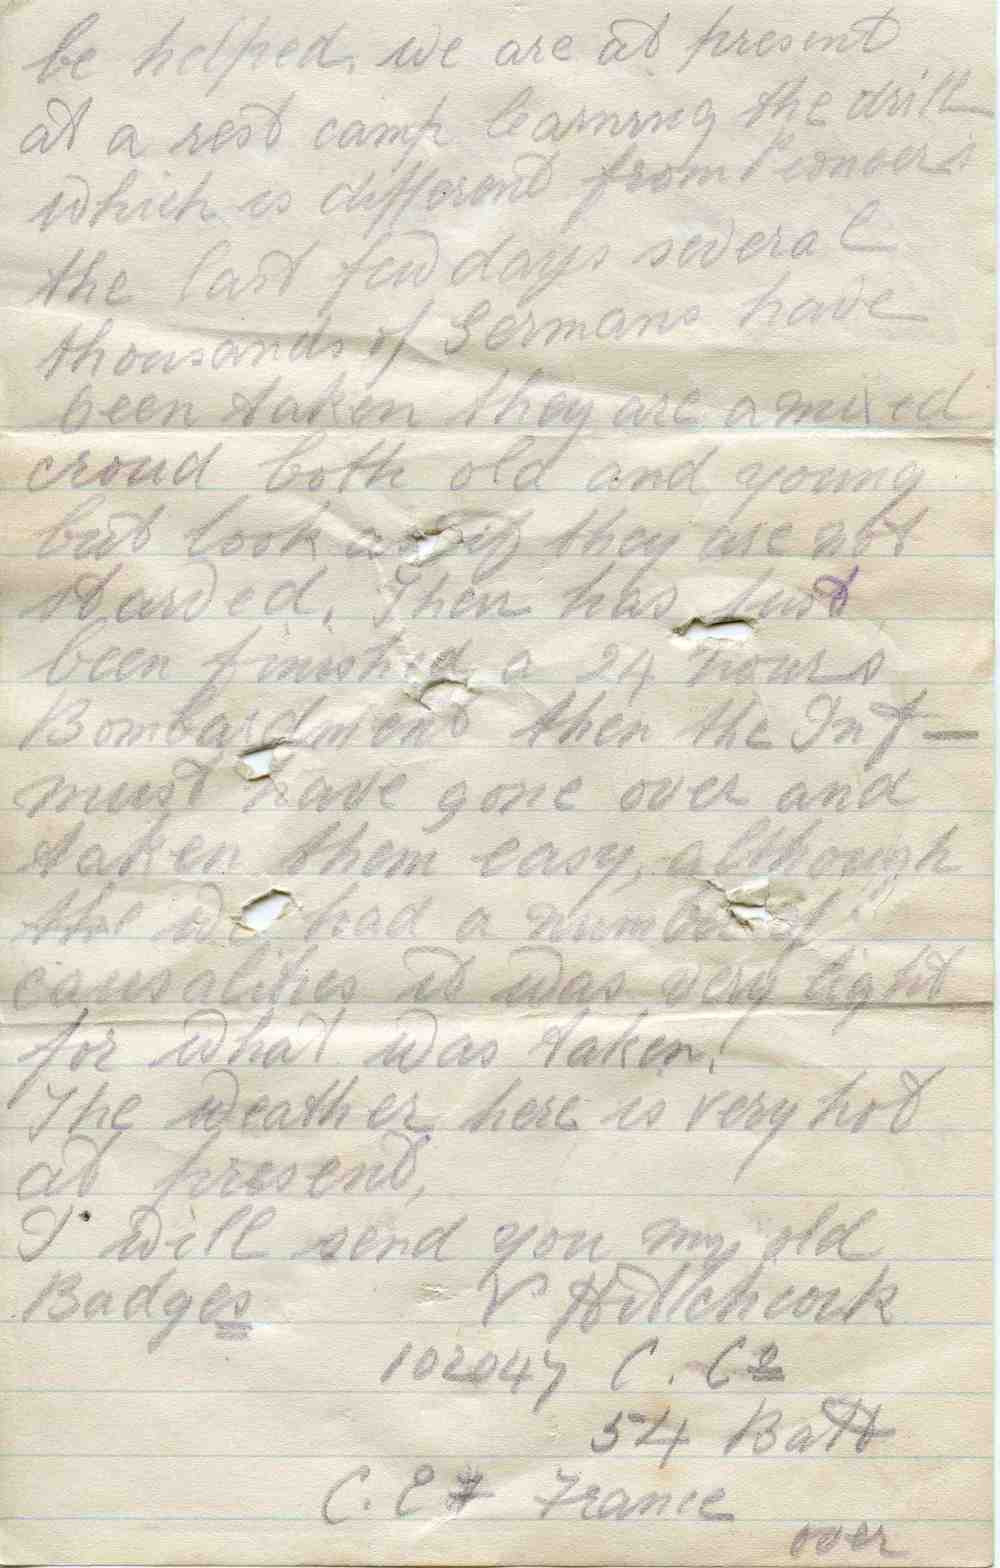 be helped, we are at present
at a rest camp learning the drill
which is different from Pioneers
the last few days several
thousands of Germans have
been taken they are a mixed
croud both old and young
but look as if they are not
starved. Then has just
been finished a 24 hours
Bombardment then the Inf—
must have gone over and
taken them easy, although
the we had a number of
causalities it was very light
for what was taken.
The weather here is very hot
at present,
I will send you my old
Badges V Hillchcock
102047 C. Co
54 Batt
C. E F France
over